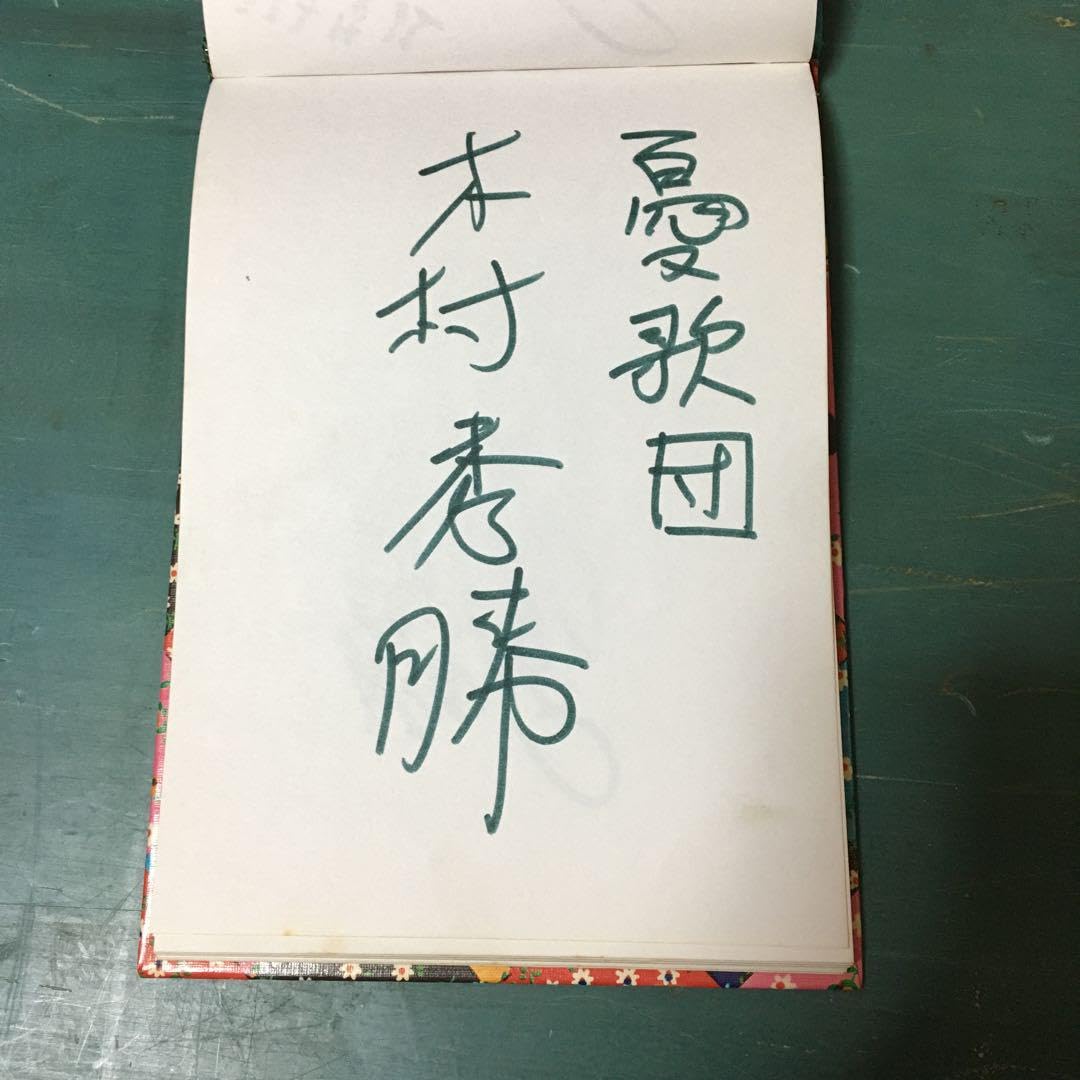 憂歌団
木村秀勝